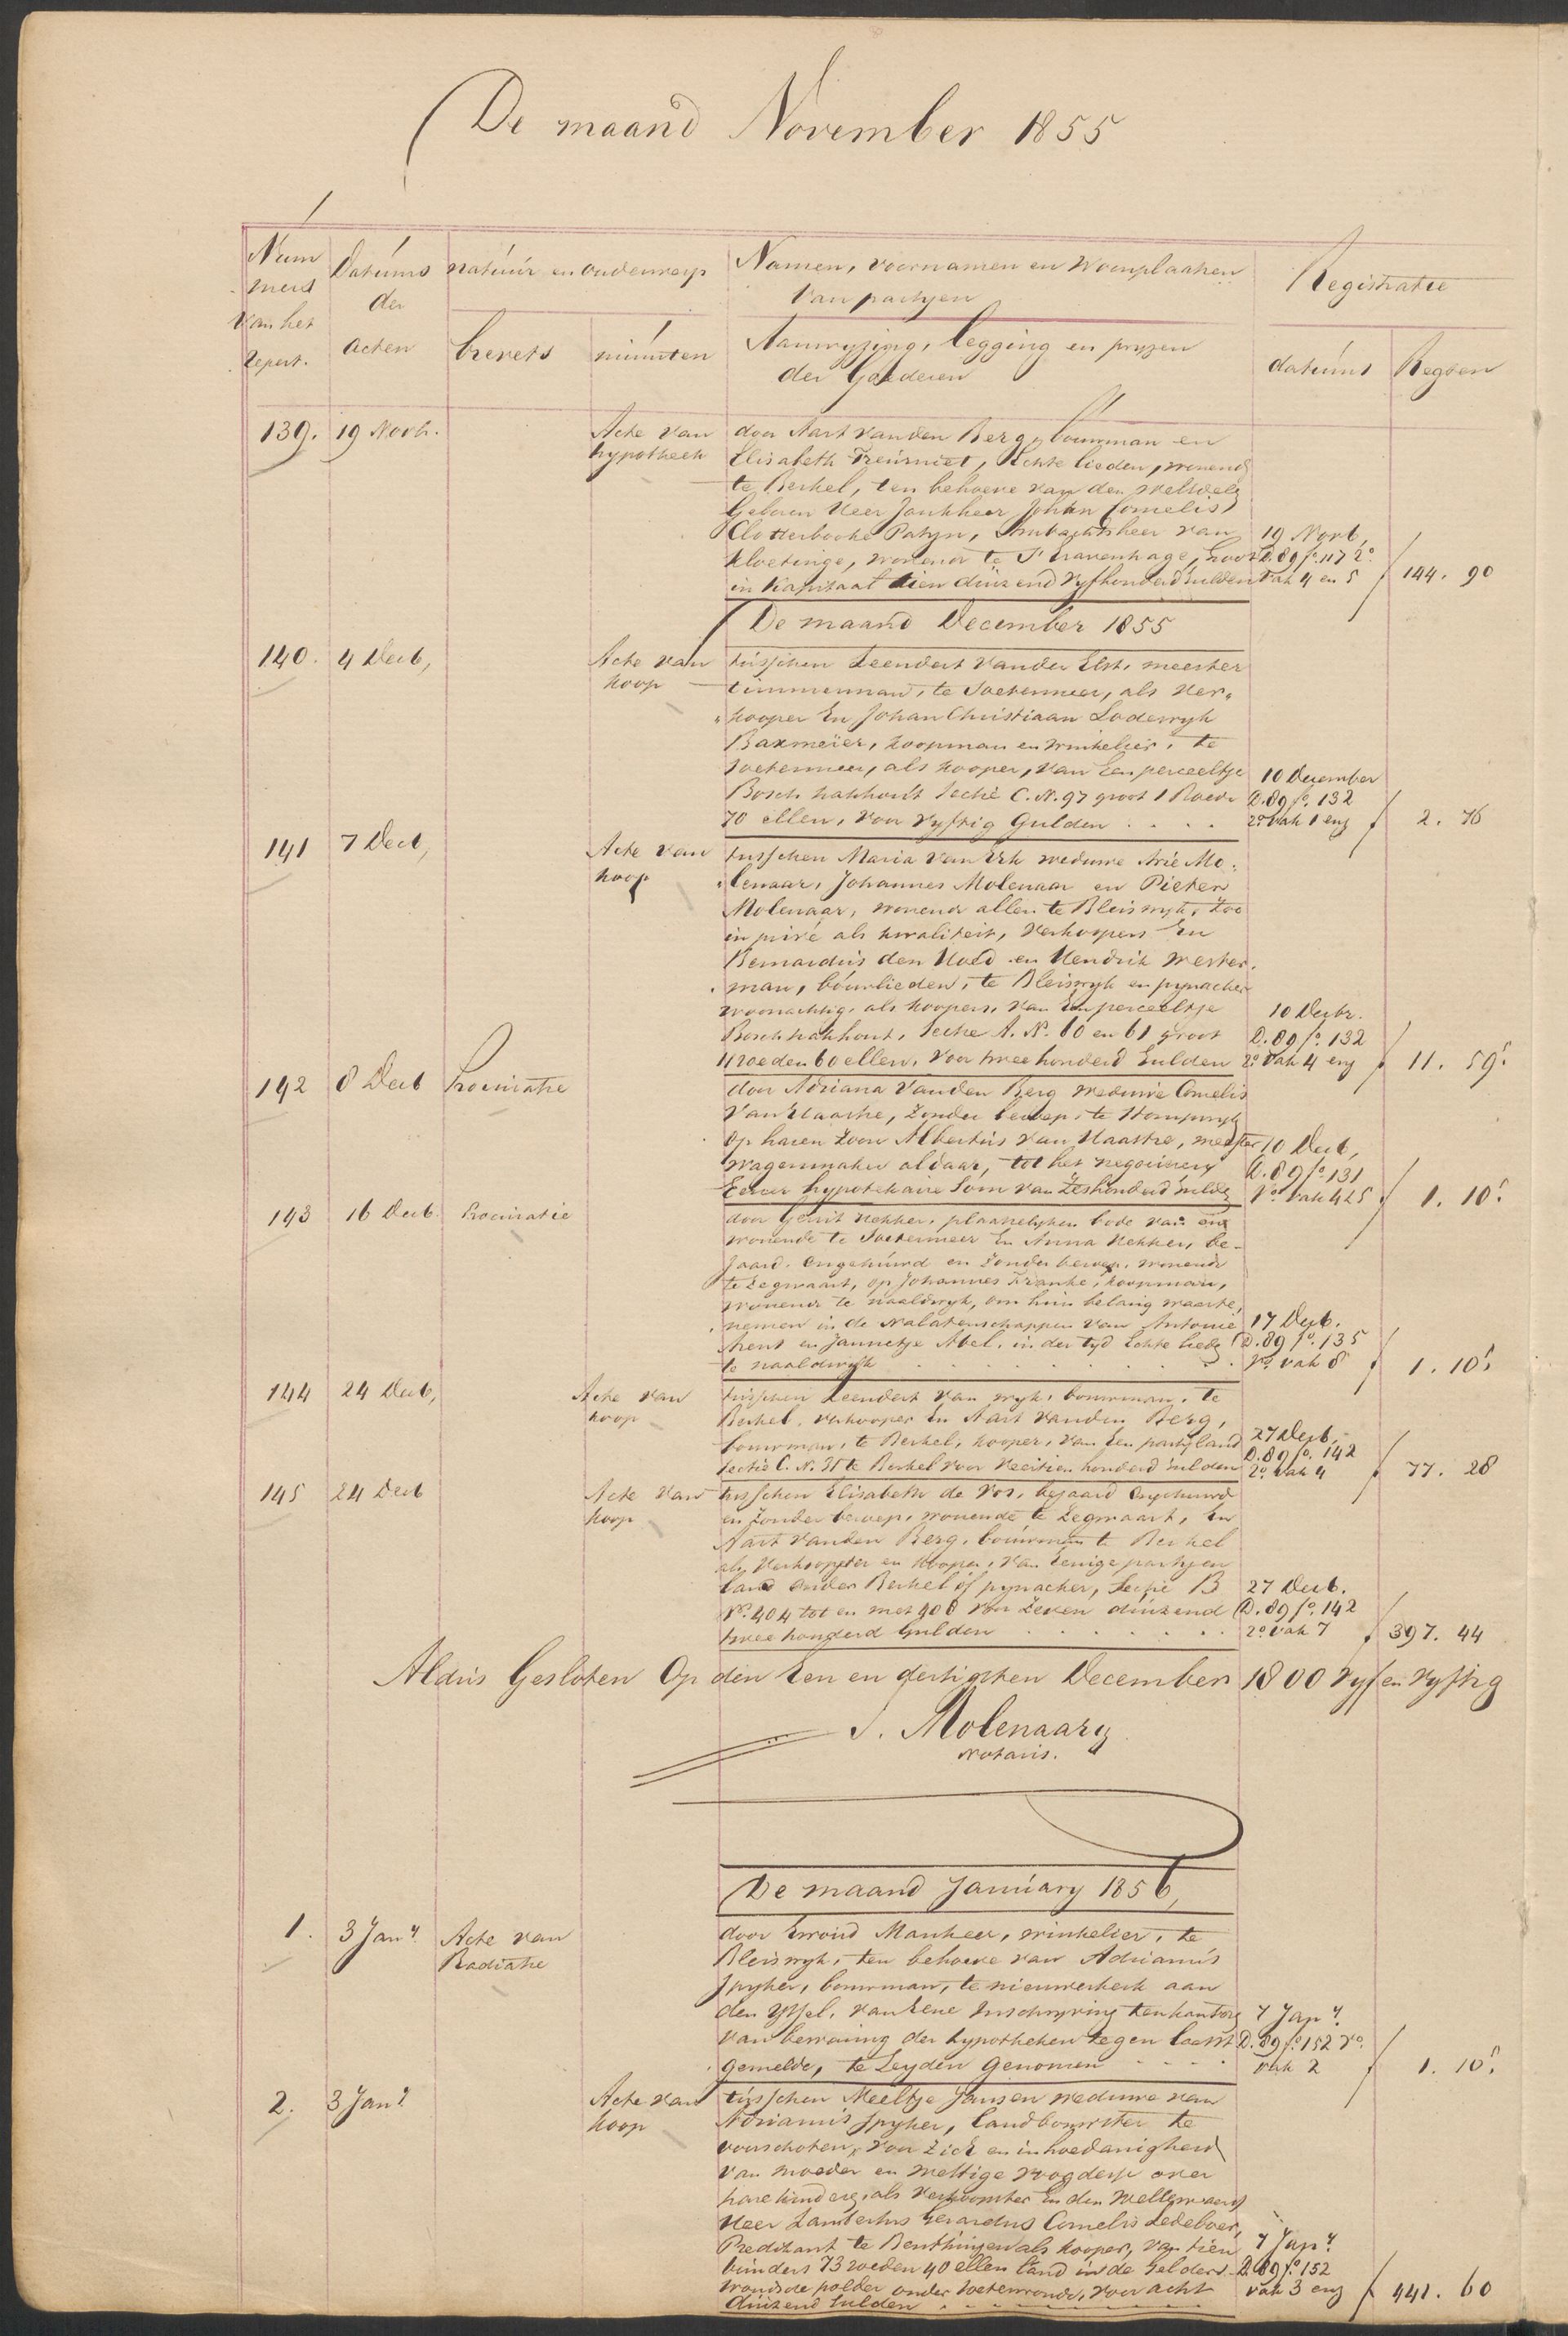 De maand November 1855
Num
mers
van het
Repert.
Datums
der
Acten
natuur en onderwerp
brevets
minuten
Namen, voornamen en Woonplaatsen
van partyen
Aanwyzing, legging en pryzen
der Goederen
Registratie
datums
Regten
139. 19 Novb. Acte van
hypotheek
door Aart vanden Berg, bouwman en
Elisabeth Treurniet, Echte lieden, wonend
te Berkel, ten behoeve van den welEdelg
Geboren Heer Jonkheer Johan Cornelis
Clotterbooke Patyn, Ambachtsheer van
Kloetinge, wonend te S' Gravenhage, Groot
in Kapitaal tien duizend vyfhonderd Gulden
19 Novb,
D. 89 fo. 117 2o.
vak 4 en 5
144. 90
De maand December 1855
140. 4 Decb, Acte van
koop
tusschen Leendert vander Elst, meester
timmerman, te Soetermeer, als Ver„
„kooper En Johan Christiaan Lodewyk
Baxmeier, koopman en winkelier, te
Soetermeer, als kooper, van Een perceeltje
Bosch hakhout Sectie C. N. 97 groot 1 Roede
70 ellen, voor Vyftig Gulden . . . .
10 December
D. 89 fo. 132
2o vak 1 enz
2. 76
141 7 Decb, Acte van
koop
tusschen Maria van Erk weduwe Arie Mo„
„lenaar, Johannes Molenaar en Pieter
Molenaar, wonend allen te Bleiswyk, zoo
in privé als kwaliteit, Verkoopers En
Bernardus den Hoed en Hendrik Wester„
„man, bouwlieden, te Bleiswyk en pynacker
woonachtig, als koopers, van Een perceeltje
Bosch hakhout, Sectie A. N. 60 en 61 groot
11 roeden 60 ellen, voor twee honderd Gulden
10 Decbr.
D. 89 fo. 132
2o vak 4 enz
11. 59⁵
142 8 Decb Procuratie
door Adriana Vanden Berg weduwe Cornelis
Van Haastre, zonder beroep, te Stompwyk
op haren Zoon Albertus van Haastre, meester
wagenmaker aldaar, tot het negotieren
Eener hypothekaire Som van Zeshonderd Guldn
10 Decb,
D. 89 fo. 131
Vo. vak 4 & 5
1. 10⁵
143 16 Decb. Procuratie
door Gerrit Hekker, plaatselyken bode van en
wonende te Soetermeer En Anna Hekker, be„
jaard, ongehuwd en zonder beroep, wonend
te Zegwaart, op Johannes Franke, koopman,
wonend te naaldwyk, om hun belang waarte„
„nemen in de Nalatenschappen van Antonie
Arent en Jannetje Abel, in der tyd Echte lieden
te naaldwyk . . . . . . .
17 Decb.
D. 89 fo. 135
Vo. vak 8
1. 10⁵
144 24 Decb, Acte van
koop
tusschen Leendert van wyk, bouwman, te
Berkel, verkooper En Aart vanden Berg,
bouwman, te Berkel, kooper, van Een party land
sectie C. N. 31 te Berkel voor Veertien honderd Gulden
27 Decb,
D. 89 fo. 142
2o. vak 4
77. 28
145 24 Decb Acte van
koop
tusschen Elisabeth de Vos, bejaard ongehuwd
en zonder beroep, wonende te Zegwaart, En
Aart vanden Berg, bouwman te Berkel
als Verkoopster en kooper, van Eenige partyen
land onder Berkel of pynacker, Sectie B
No. 404 tot en met 408 voor Zeven duizend
twee honderd Gulden . . . . . . .
27 Decb.
D. 89 fo. 142
2o vak 7
397. 44
Aldus Gesloten Op den Een en dertigsten December 1800 vyf en vyftig
J. Molenaar
Notaris.
De maand January 1856,
1. 3 Jany. Acte van
Radiatie
door Manheer, winkelier, te
Bleiswyk, ten behoeve van Adrianus
Spyker, bouwman, te nieuwerkerk aan
den Yssel, van Eene Inschryving ten kantore
van bewaring der hypotheken tegen laast
gemelde, te Leyden Genomen . . . .
7 Jany.
D. 89 fo. 152 Vo.
vak 2
1. 10⁵
2. 3 Jany. Acte van
koop
tusschen Neeltje Jansen weduwe van
Adrianus Spyker, landbouwster te
voorschoten, voor Zich en in hoedanigheid
van moeder en wettige voogdesse over
hare kinderen, als Verkoopster En den Wel Eerwaard
Heer Lambertus Gerardus Cornelis Ledeboer,
Predikant te Benthuizen als kooper, van tien
bunders 73 roeden 40 ellen land in de Gelders
woudsche polder onder Soeterwoude, voor acht
duizend Gulden . . . . . . .
7 Jany.
D. 89 fo. 152
vak 3 enz
441. 60